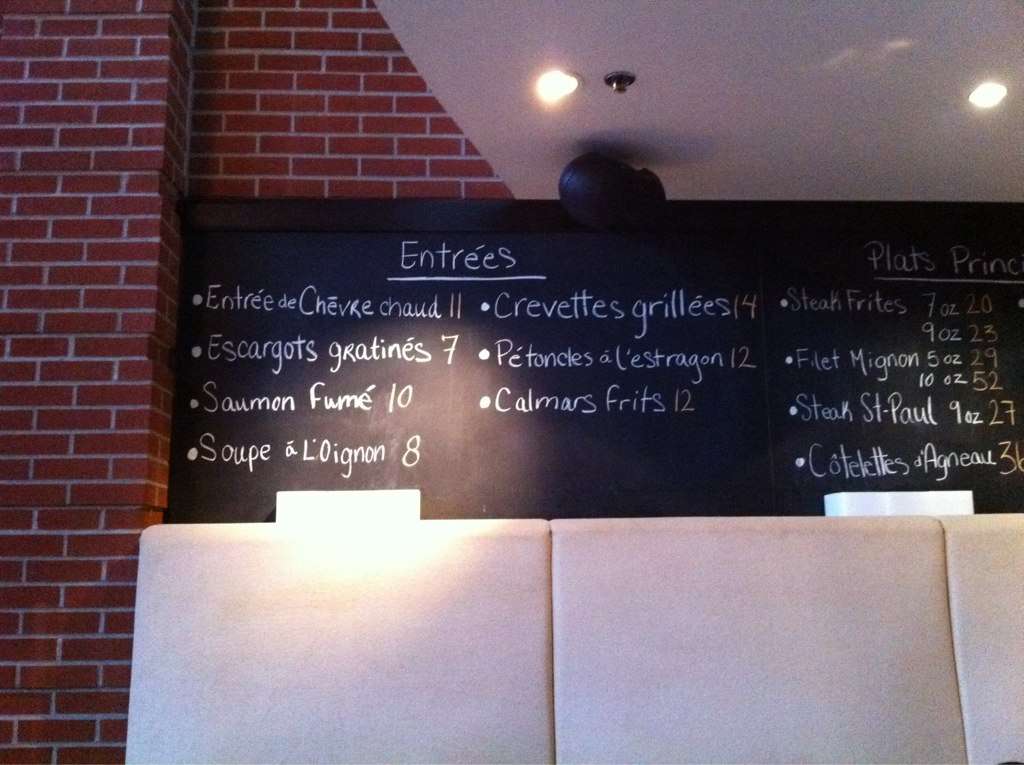 Entrées
•Entrée de Chēvre chaud 11
•Escargots gratinés 7
•Saumon Fumé 10
•Soupe à L'Oignon 8
•Crevettes grillées 14
•Pétoncles à l'estragon 12
•Calmars Frits 12
Plats Princi
•Steak Frites 7 oz 20
9 oz 23
•Filet Mignon 5 oz 29
10 oz 52
•Steak St-Paul 9 oz 27
•Côtelettes d'Agneau 36